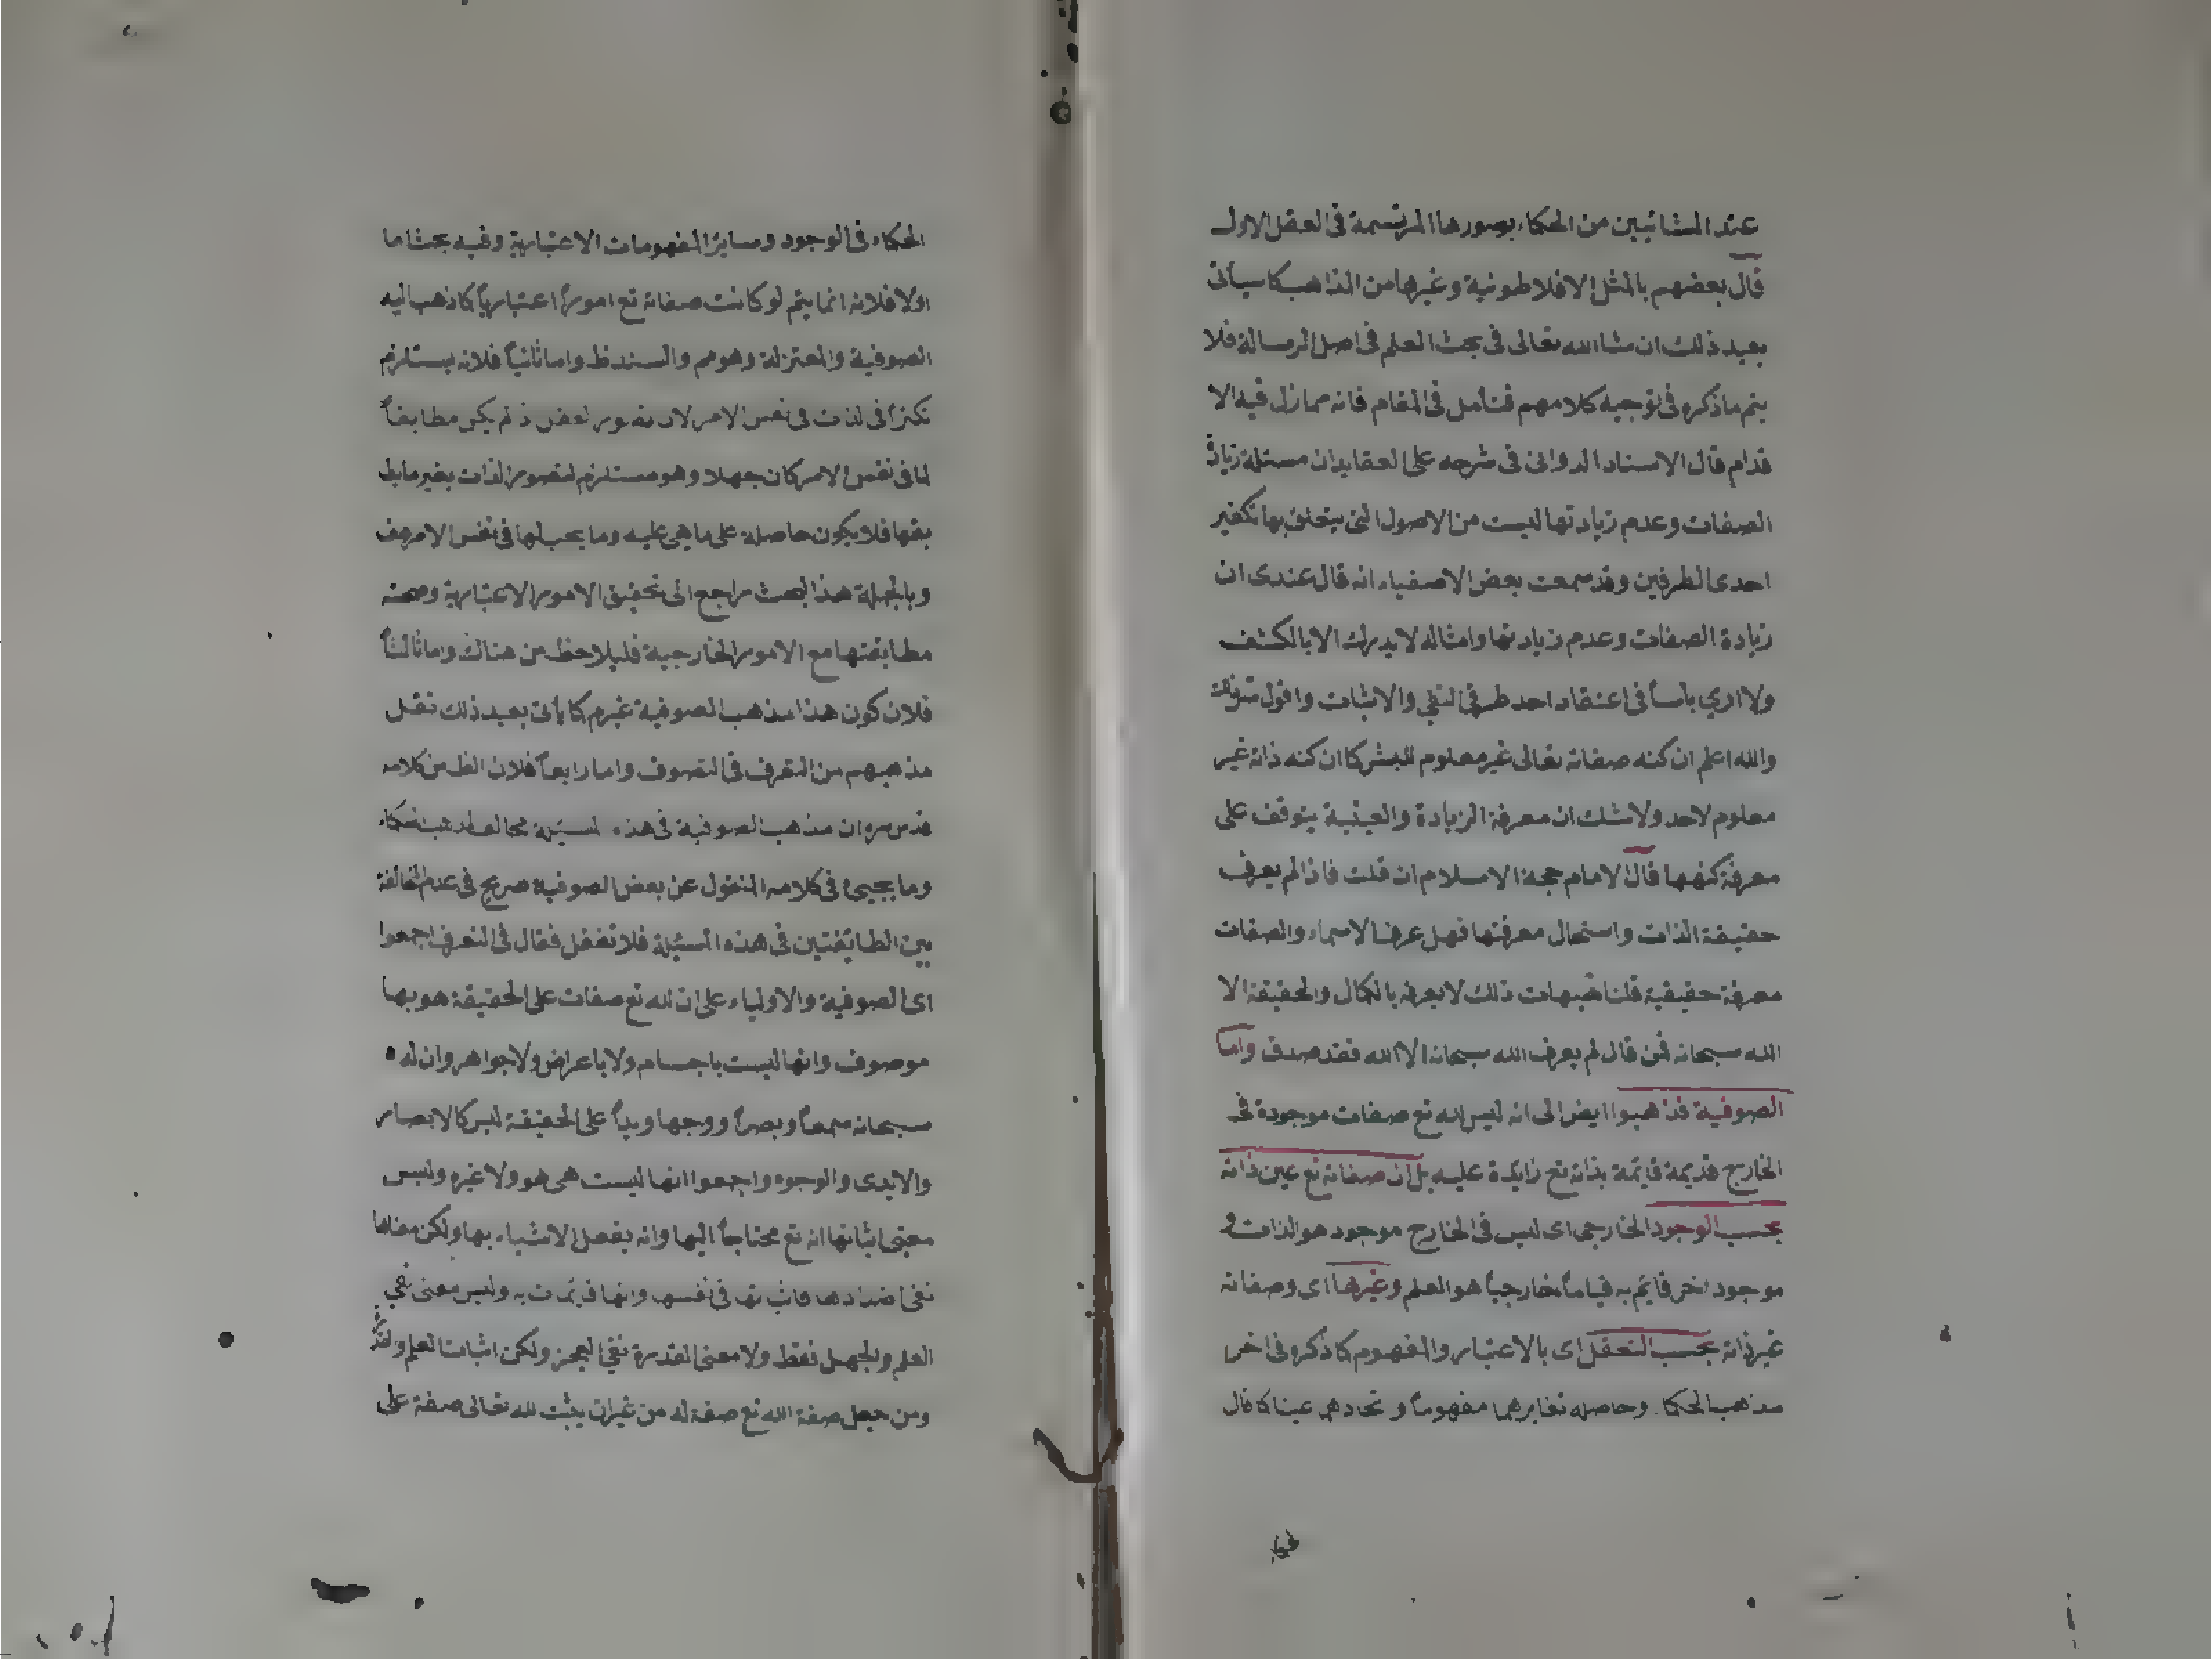 عند المشائيين من الحكماء بصورها المرتسمة فى العقل الاول
قال بعضهم بالمثل الافلاطونية وغيرها من المذاهب كما سيأتى
بعيد ذلك ان شاالله تعالى فى بحث العلم فى اصل الرسالة فلا
يتم ماذكره فى توجيه كلامهم فتأمل فى المقام فانه مما زل فيه الا
قدام قال الاستاد الدوانى فى شرحه على العقايد ان مسئلة زيادة
الصفات وعدم زيادتها ليست من الاصول التى يتعلق بها تكفير
احدى الطرفين وقد سمعت بعض الاصفياء انه قال عندى ان
زيادة الصفات وعدم زيادتها وامثاله لا يدرك الا بالكشف
ولا ارى بأسا فى اعتقاد احد طرفى النفى والاثبات واقول
والله اعلم ان كنه صفاته تعالى غير معلوم للبشر كما ان كنه ذاته غير
معلوم لاحد ولا شك ان معرفة الزيادة والعينية يتوقف على
معرفة كنهها قال الامام حجة الاسلام ان قلت فاذا لم يعرف
حقيقة الذات واستحال معرفتها فهل عرفنا الاسماء والصفات
معرفة حقيقية قلنا هيهات ذلك لا يعرفه بالكمال والحقيقة الا
الله سبحانه فمن قال لم يعرف الله سبحانه الا الله فقد صدق واما
الصوفية فذهبوا ايضا الى انه ليس لله تع صفات موجودة فى
الخارج قديمة قايمة بذاته تع زايدة عليه بل ان صفاته تع عين ذاته
بحسب الوجود الخارجى اى ليس فى الخارج موجود هو الذات و
موجود اخر قايم به قياما خارجيا هو العلم وغيرها اى وصفاته
غير ذاته بحسب التعقل اى بالاعتبار والمفهوم كما ذكره فى اخر
مذهب الحكما وحاصله تغايرهما مفهوما واتحادهما عينا كما قال
الحكماء فى الوجود وساير المفهومات الاعتبارية وفيه بحث اما
اولا فلانه انما يتم لو كانت صفاته تع امورا اعتباريا كما ذهب اليه
الصوفية والمعتزلة وهو مم والسند ظ واما ثانيا فلانه يستلزم
تكثرا فى الذات فى نفس الامر لان تصور العقل اذ لم يكن مطابقا
لما فى نفس الامر كان جهلا وهو مستلزم لتصور الذات بغير مايطا
بقها فلا يكون حاصله على ما هى عليه وما يجب لها فى نفس الامر هف
وبالجملة هذا البحث راجع الى تحقيق الامور الاعتبارية وصحة
مطابقتها مع الامور الخارجية فليلاحظ من هناك واما ثالثا
فلان كون هذا مذهب الصوفية غير م كما يأتى بعيد ذلك نقل
مذهبهم من التعرف فى التصوف واما رابعا فلان الظ من كلامه
قدس سره ان مذهب الصوفية فى هذه المسئلة مخالف لمذهب الحكماء
وما يجيىء فى كلامه المنقول عن بعض الصوفية صريح فى عدم المخالفة
بين الطائفتين فى هذه المسئلة فلا تغفل فقال فى التعرف اجمعوا
اى الصوفية والاولياء على ان لله تع صفات على الحقيقة هو بها
موصوف وانها ليست باجسام ولا باعراض ولا جواهر وان له
سبحانه سمعا وبصرا ووجها ويدا على الحقيقة ليس كالابصار
والايدى والوجوه واجمعوا انها ليست هى هو ولا غيره وليس
معنى اثباتها انه تع محتاجا اليها وانه يفعل الاشياء بها ولكن معناها
نفى اضدادها واثباتها فى نفسها وانها قائمات به وليس معنى نفى
العلم والجهل فقط ولا معنى القدرة نفى العجز ولكن اثبات العلم والقدرة
ومن جعل صفة الله تع صفة له من غير ان يثبت لله تعالى صفة على